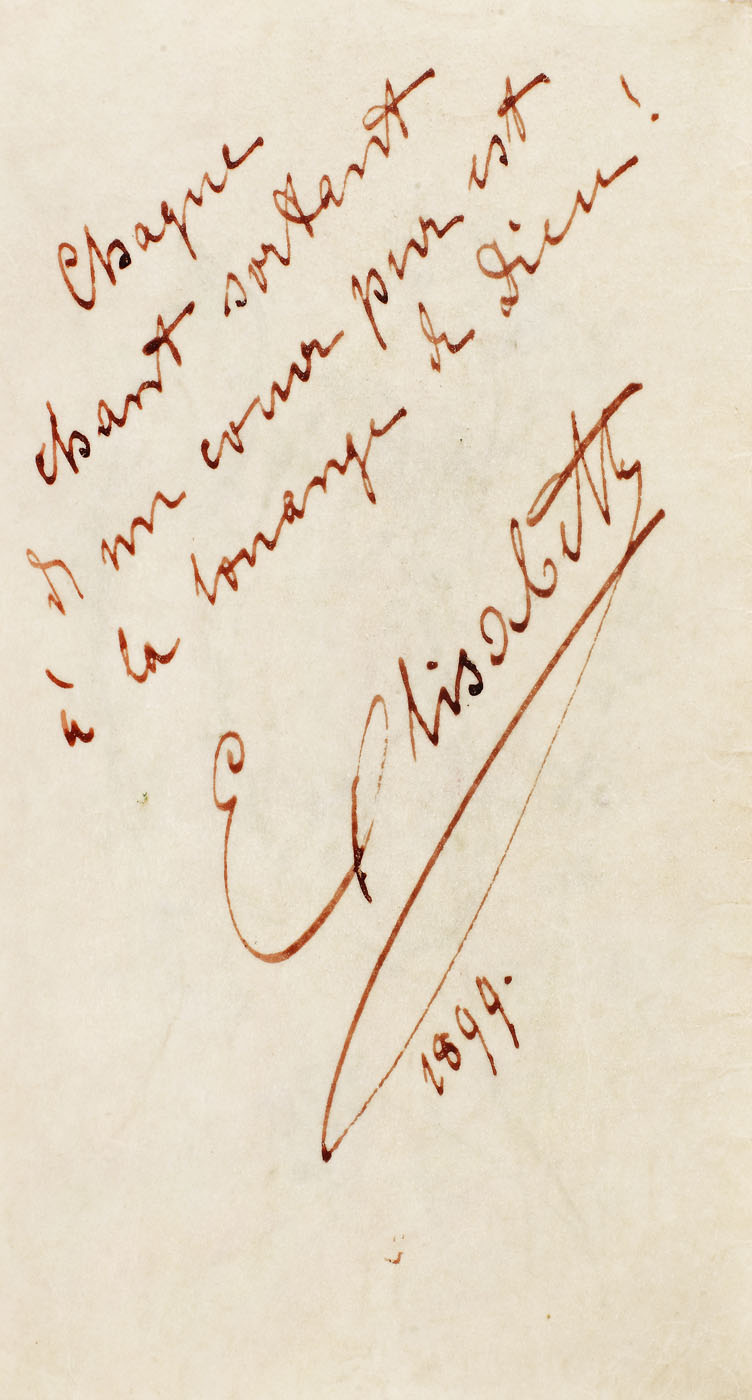 Chaque
chant sortant
d'un coeur pur est
à la louange de Dieu!
Elisabeth
1899.